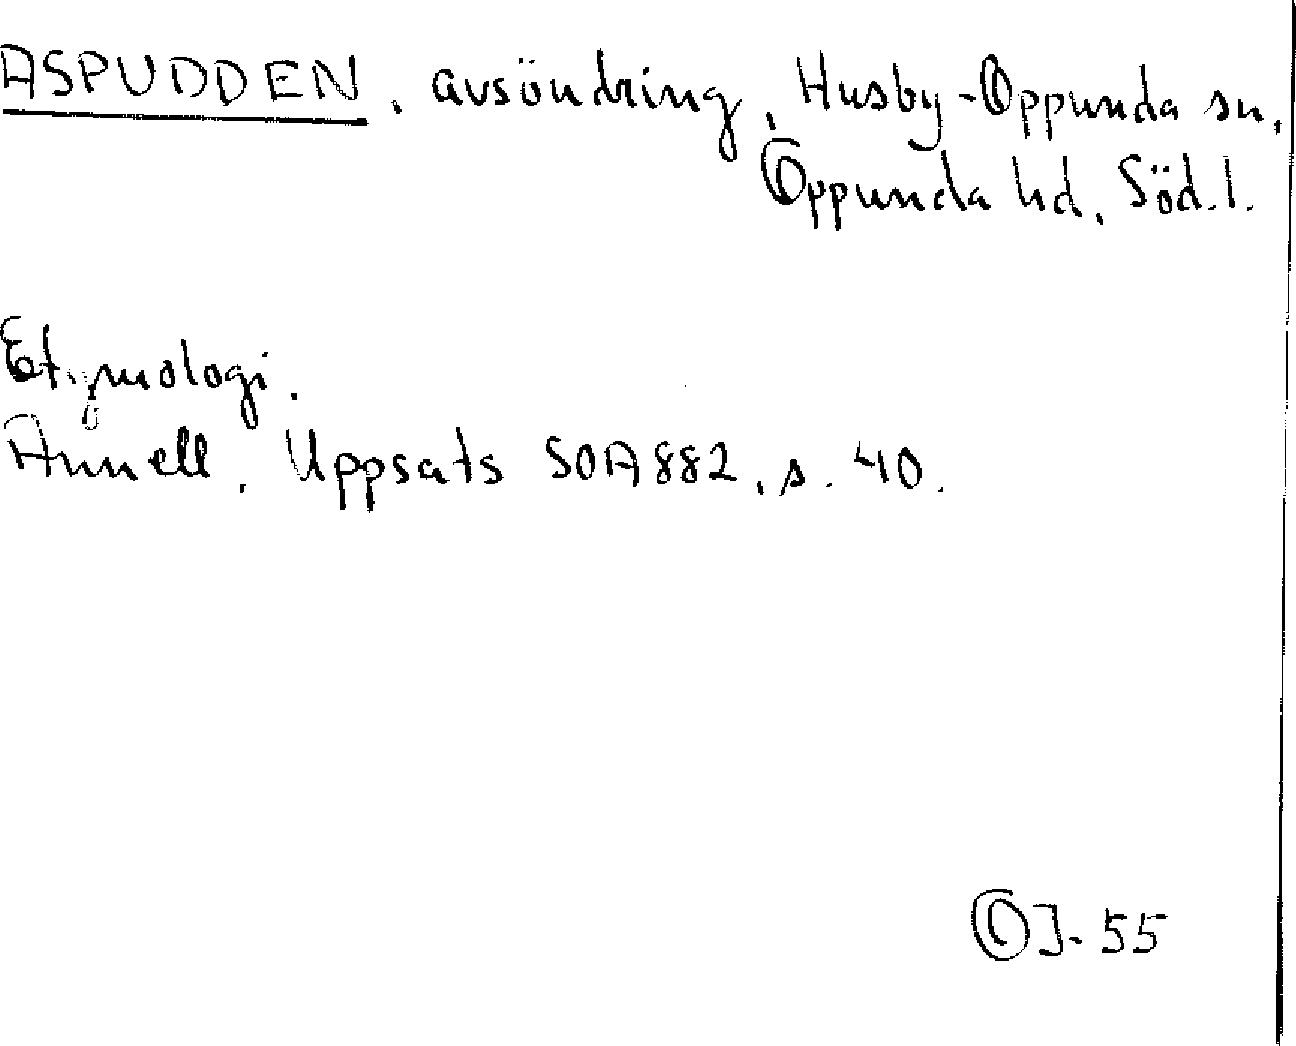 ASPUDDEN, avsöndring, Husby-Oppunda sn,
Oppunda hd, Söd.l.
Etymologi.
Annell, Uppsats SOA 882, s. 40.
OJ-55